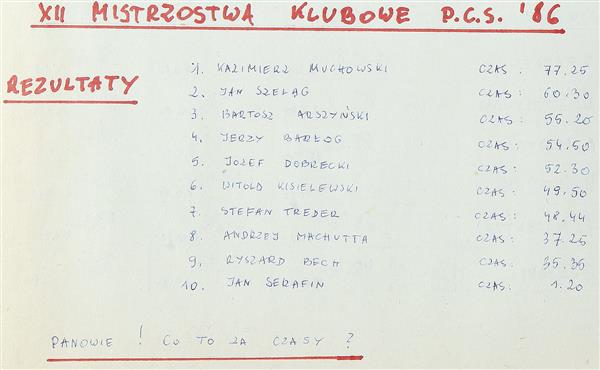 XII MISTRZOSTWA KLUBOWE P.C.S. '86
REZULTATY
1. KAZIMIERZ MUCHOWSKI CZAS: 77.25
2. JAN SZELĄG CZAS: 60.30
3. BARTOSZ ARSZYŃSKI CZAS: 55.20
4. JERZY BARŁOG CZAS: 54.50
5. JÓZEF DOBRECKI CZAS: 52.30
6. WITOLD KISIELEWSKI CZAS: 49.50
7. STEFAN TREDER CZAS: 48.44
8. ANDRZEJ MACHUTTA CZAS: 37.25
9. RYSZARD BECH CZAS: 35.35
10. JAN SERAFIN CZAS: 1.20
PANOWIE ! CO TO ZA CZASY ?